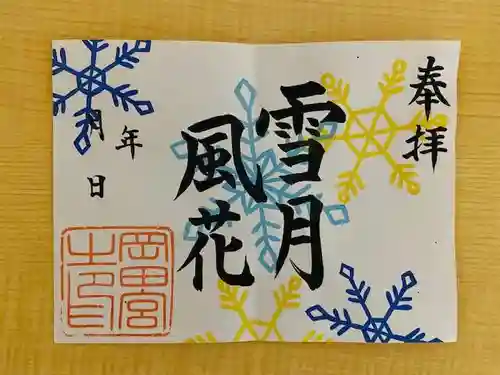 奉拝
雪月
風花
年
月
日
岡田宮
之印